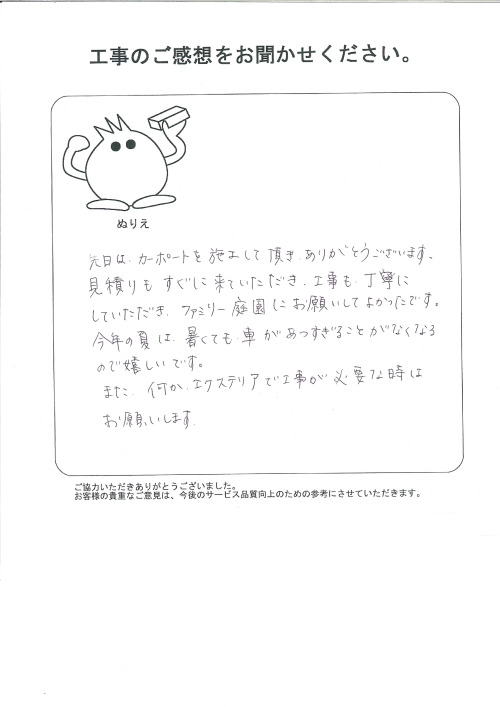 工事のご感想をお聞かせください。
ぬりえ
先日は、カーポートを施工して頂き、ありがとうございます。
見積りもすぐに来ていただき、工事も、丁寧に
していただき、ファミリー庭園にお願いしてよかったです。
今年の夏は、暑くても、車があつすぎることがなくなる
ので嬉しいです。
また、何か、エクステリアで工事が必要な時は
お願いします。
ご協力いただきありがとうございました。
お客様の貴重なご意見は、今後のサービス品質向上のための参考にさせていただきます。